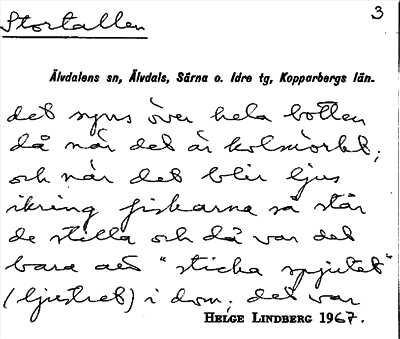 Stortallen
3
Älvdalens sn, Älvdals, Särna o. Idre tg, Kopparbergs län.
det syns över hela botten
då när det är kolmörkt;
och när det blir ljus
ikring fiskarna så står
de stilla och då var det
bara att "sticka spjutet"
(ljustret) i dom; det var
HELGE LINDBERG 1967.